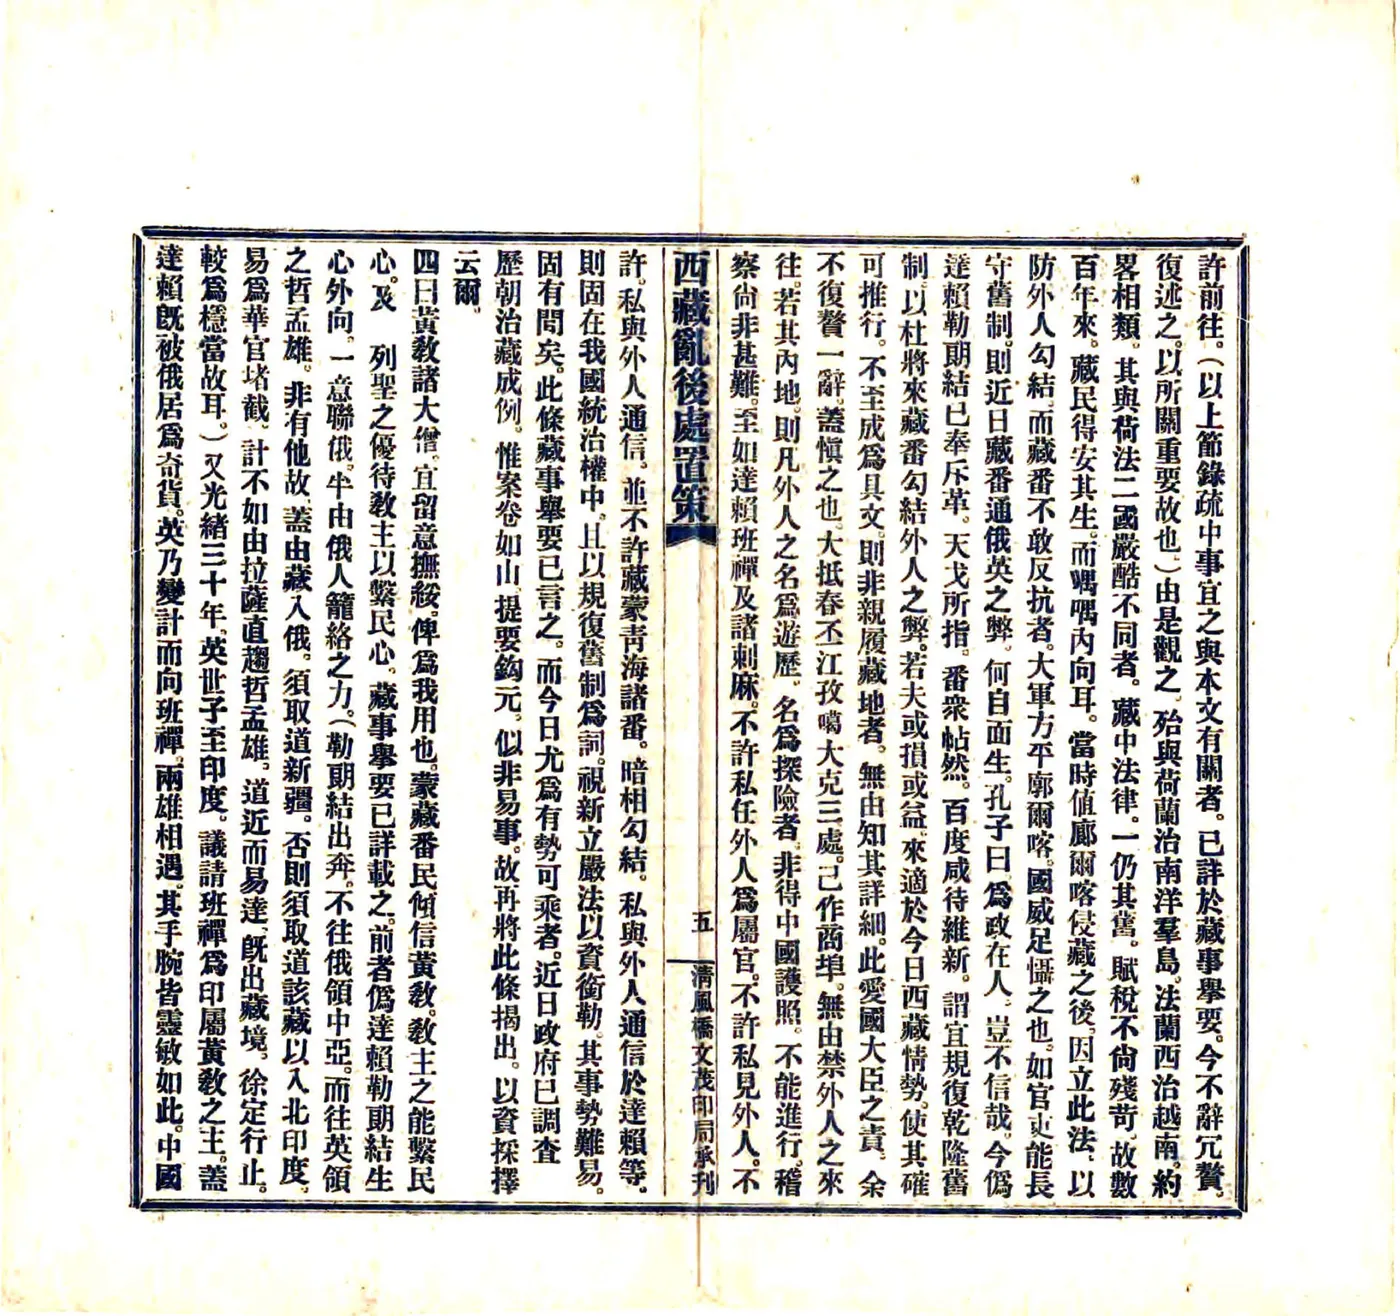 許前往。（以上節錄疏中事宜之與本文有關者。已詳於藏事舉要。今不辭冗贅。
復述之。以所關重要故也。）由是觀之。殆與荷蘭治南洋羣島。法蘭西治越南。約
畧相類。其與荷法二國嚴酷不同者。藏中法律。一仍其舊。賦稅不尙殘苛。故數
百年來。藏民得安其生。而喁喁內向耳。當時值廓爾喀侵藏之後。因立此法。以
防外人勾結。而藏番不敢反抗者。大軍方平廓爾喀。國威足懾之也。如官吏能長
守舊制。則近日藏番通俄英之弊。何自面生。孔子曰。爲政在人。豈不信哉。今僞
達賴勒朗結已奉斥革。天戈所指。番衆帖然。百度咸待維新。謂宜規復乾隆舊
制。以杜將來藏番勾結外人之弊。若夫或損或益。來適於今日西藏情勢。使其確
可推行。不至成爲具文。則非親履藏地者。無由知其詳細。此愛國大臣之責。余
不復贅一辭。蓋愼之也。大抵春丕江孜噶大克三處。已作商埠。無由禁外人之來
往。若其內地。則凡外人之名爲遊歷。名爲探險者。非得中國護照。不能進行。稽
察尙非甚難。至如達賴班禪及諸剌麻。不許私任外人爲屬官。不許私見外人。不
西藏亂後處置策
五
清風橋文茂印局承刊
許。私與外人通信。並不許藏蒙靑海諸番。暗相勾結。私與外人通信於達賴等。
則固在我國統治權中。且以規復舊制爲詞。視新立嚴法以資銜勒。其事勢難易。
固有間矣。此條藏事舉要已言之。而今日尤爲有勢可乘者。近日政府已調查
歷朝治藏成例。惟案卷如山。提要鈎元。似非易事。故再將此條揭出。以資採擇
云爾。
四曰黃敎諸大僧。宜留意撫綏。俾爲我用也。蒙藏番民。傾信黃敎。敎主之能繫民
心。及　列聖之優待敎主以繫民心。藏事舉要已詳載之。前者僞達賴勒朗結生
心外向。一意聯俄。半由俄人籠絡之力。（勒朗結出奔。不往俄領中亞。而往英領
之哲孟雄。非有他故。蓋由藏入俄。須取道新疆。否則須取道該藏以入北印度。
易爲華官堵截。計不如由拉薩直趨哲孟雄。道近而易達。旣出藏境。徐定行止。
較爲穩當故耳。）又光緒三十年。英世子至印度。議請班禪爲印屬黃敎之主。蓋
達賴旣被俄居爲奇貨。英乃變計而向班禪。兩雄相遇。其手腕皆靈敏如此。中國